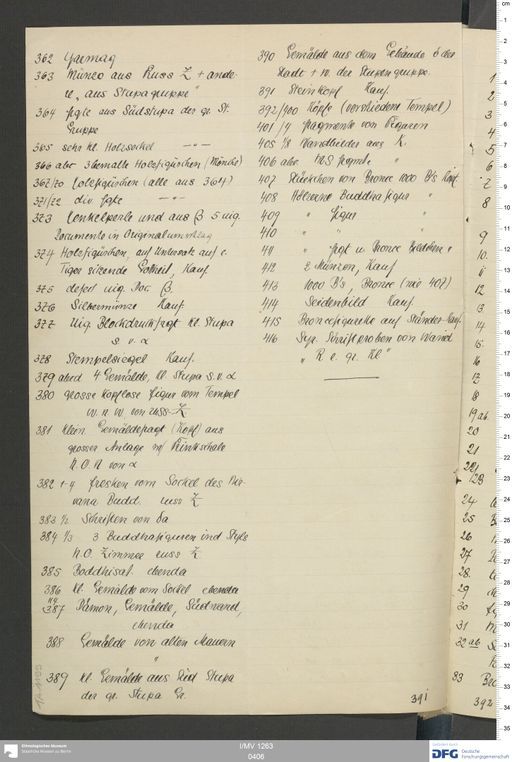 362 Yarmag
363 Münze aus Russ Z + ande-
re "aus Stupagruppe"
364 frgte aus Südstupa der gr. St.
Gruppe
365 sehr kl. Holzsockel
366 abc 3 bemalte Holzfigürchen (Mönche)
367/70 Holzfigürchen (alle aus 364)
371/72 div. frgte
373 und aus β 5 uig.
Documente in Originalumschlag
374 Holzfigürchen, auf Untersatz auf e.
Tiger sitzende Gottheit, Kauf
375 defect uig. Doc. β.
376 Silbermünze Kauf
377 Uig Blockdruckfrgt kl. Stupa
s. v. α
378 Stempelsiegel Kauf.
379 abcd 4 Gemälde, kl. Stupa s. v. α
380 grosse kopflose Figur vom Tempel
von Russ. Z
381 klein. Gemäldefragt (Kopf) aus
grosser Anlage m/
N.O. von α
382 + 4 Fresken vom Sockel des Nir-
vana Budd. russ Z
383 1/2 Schriften von da
384 1/3 3 Buddhafiguren ind Style
N.O. Zimmer russ Z.
385 Boddhisat. ebenda
386 kl. Gemälde vom Sockel ebenda
387 Dämon, Gemälde, Südwand,
ebenda
388 Gemälde von alten Mauern
"
389 kl. Gemälde aus Süd Stupa
der gr. Stupa Gr.
390 Gemälde aus dem Gebäude 6 der
Stadt + v. der Stupengruppe
391 Steinkopf Kauf.
392/400 Köpfe (verschiedene Tempel)
401/4 fragmente von Figuren
405 1/8 Wandbilder aus Z.
406 abc MS fragmte "
407 Stückchen von Bronce 1000 B's Kauf
408 Hölzerne Buddhafigur "
409 " figur "
410 " " "
411 " frgt u. Bronce Bildchen "
412 2 Münzen, Kauf
413 1000 B's, Bronce (wie 407)
414 Seidenbild Kauf
415 Broncefigurette auf Ständer Kauf.
416 Syr. Schriftproben von Wand
"R e. gr. Kl"
391
1
2
3
4
5
6
7
8
9
10
11
12
13
14
15
16
17
18
19 ab.
20
21
22/
23
24
25
26
27
28
29
30
31
32 ab
33
392
Ethnologisches Museum
Staatliche Museen zu Berlin
I/MV 1263
0406
DFG Deutsche
Forschungsgemeinschaft